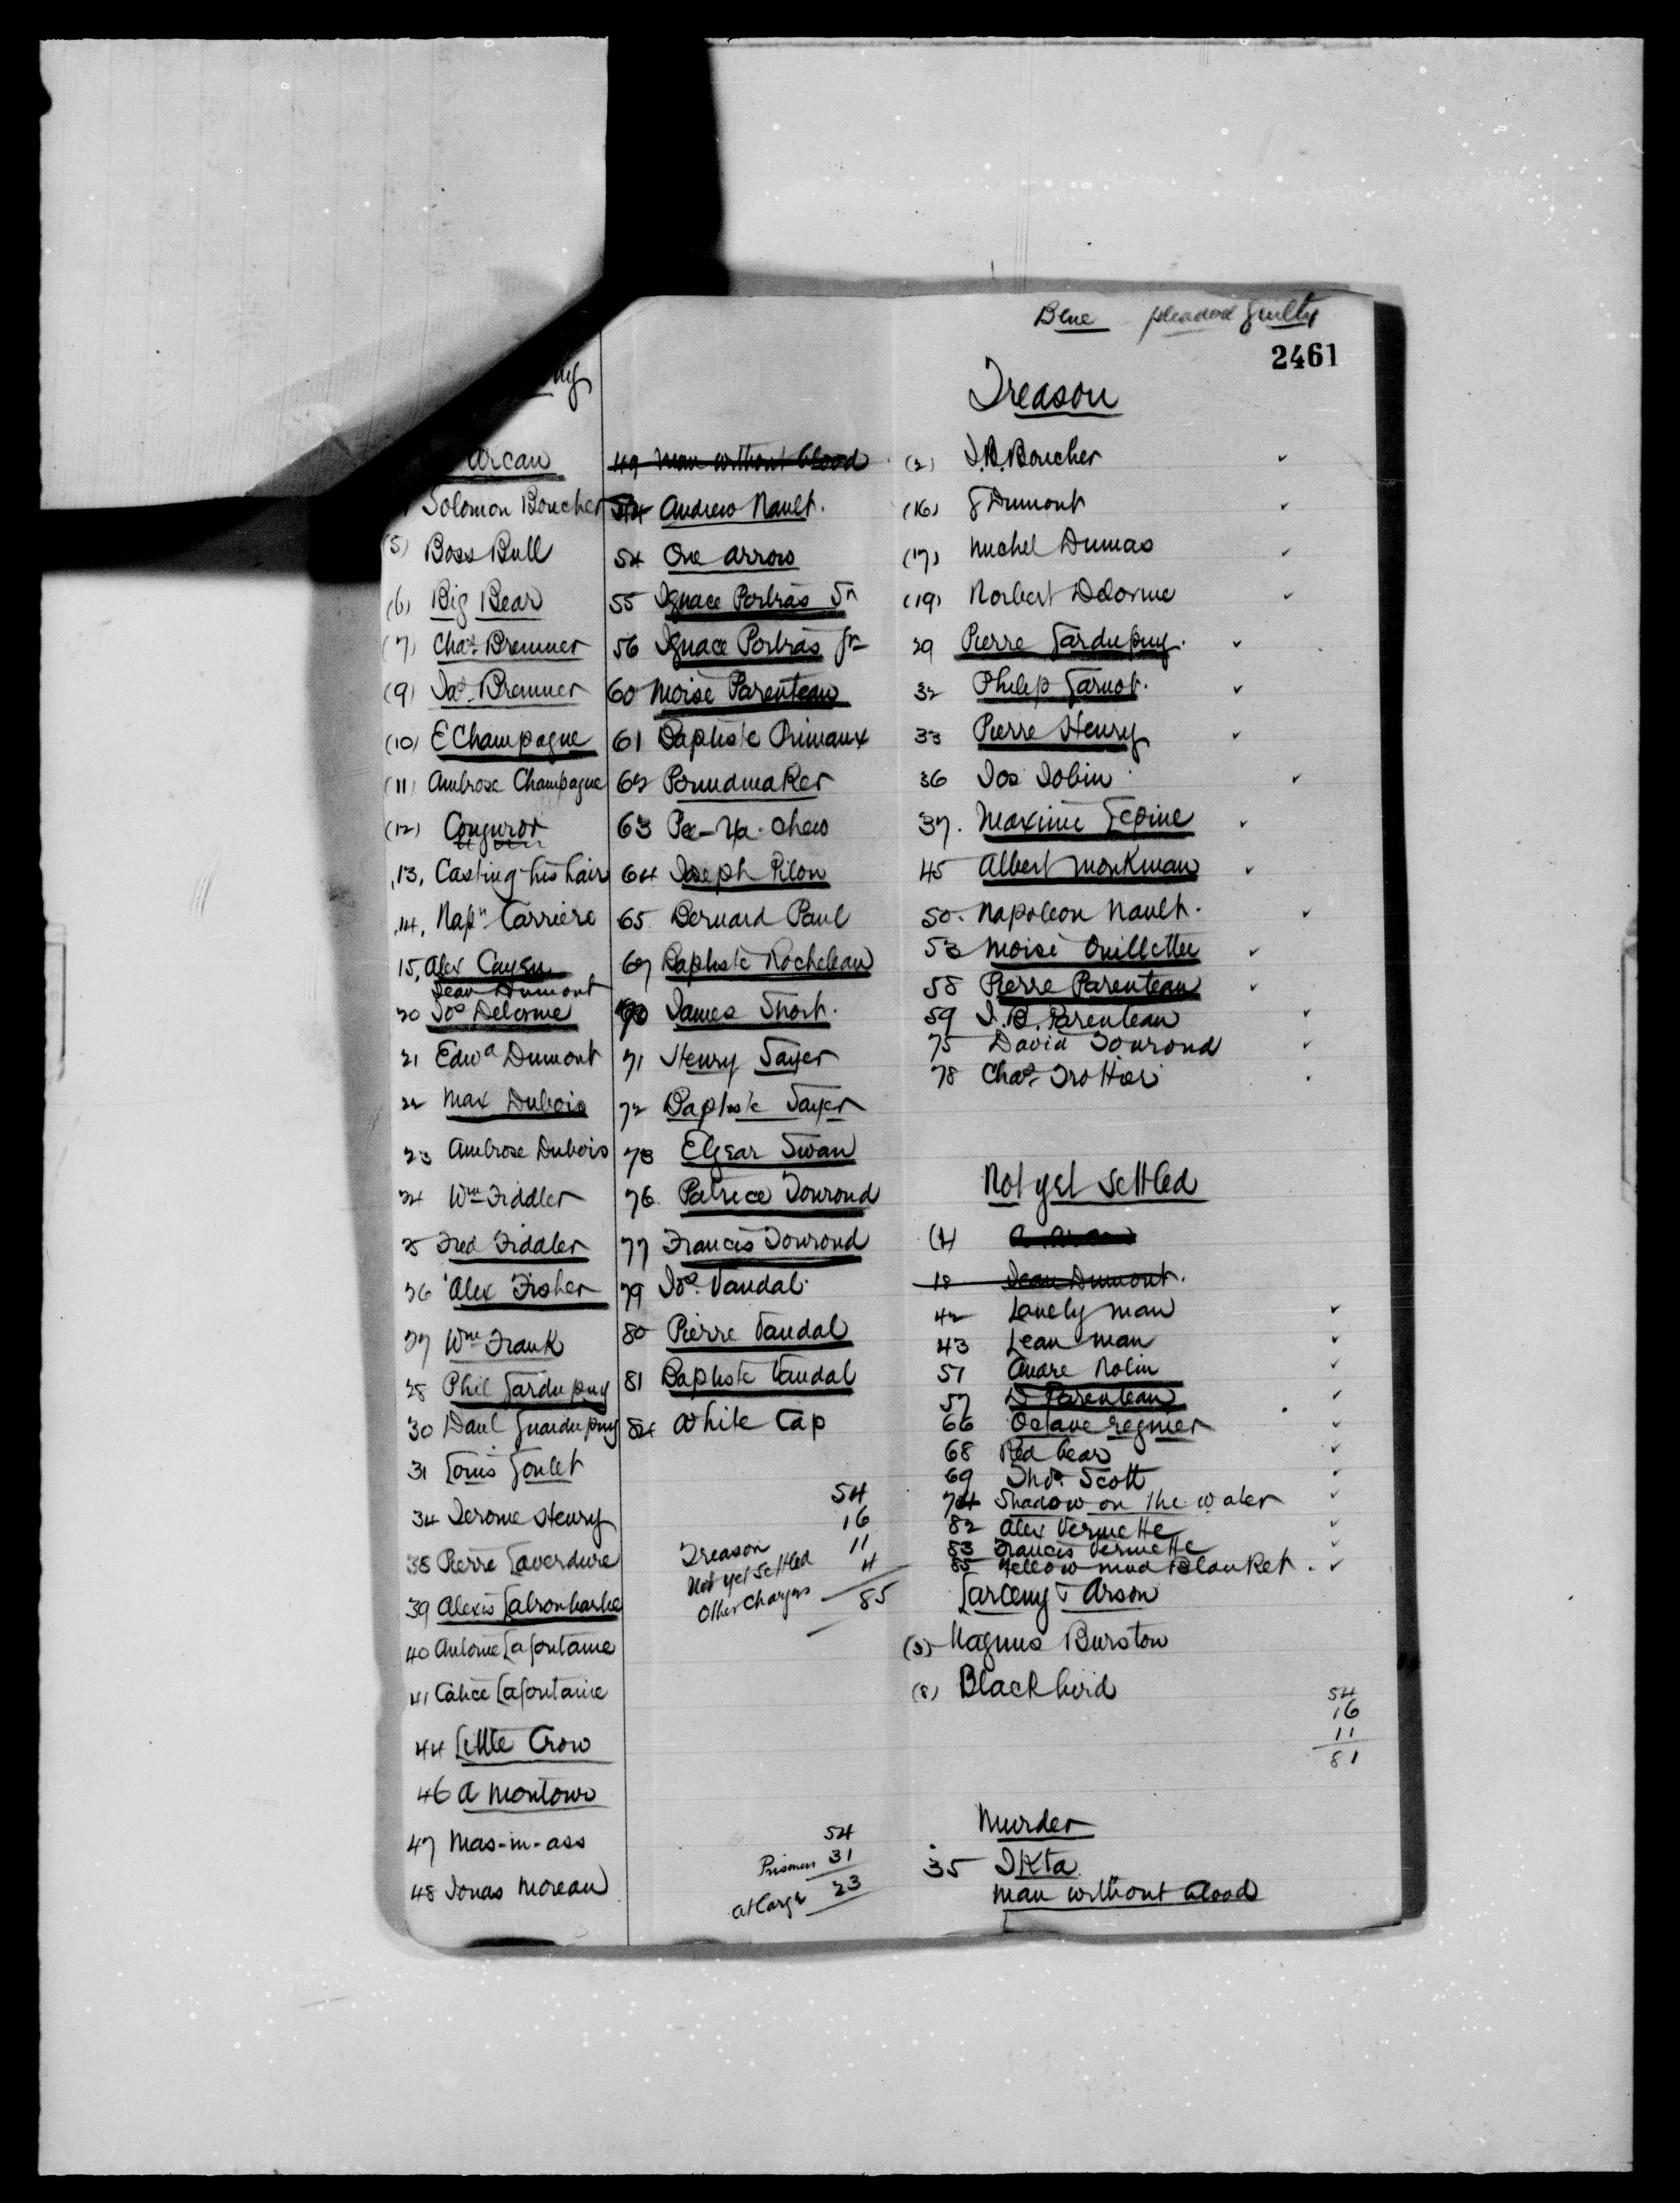 Blue pleaded guilty
2461
Arcan
Solomon Boucher
(5) Boss Bull
(6) Big Bear
(7) Chas Bremner
(9) Jas Bremner
(10) E Champagne
(11) Ambrose Champagne
(12)
13, Casting-his hair
14, Napn Carriere
15, Alex Cayen
Jean Dumont
20 Jos Delorme
21 Edwd Dumont
22 Max Dubois
23 Ambrose Dubois
24 Wm Fiddler
25 Fred Fiddler
26 Alex Fisher
27 Wm Frank
28 Phil Gardupuy
30 Danl Guardupuy
31 Louis Goulet
34 Jerome Henry
38 Pierre Laverdure
39 Alexis
40 Antoine Lafontaine
41 Calice Lafontaine
44 Little Crow
46 A Montour
47 Mas-in-ass
48 Jonas Moreau
49 Man without blood
Andrew Nault.
54 One Arrow
55 Ignace Poitras Sn
56 Ignace Poitras Jr
60 Moise Parenteau
61 Baptiste Primaux
62 Poundmaker
63 Pee-Ya-Chew
64 Joseph Pilon
65 Bernard Paul
67 Baptiste Rocheleau
70 James Short.
71 Henry Sayer
72 Baptiste Sayer
73 Elzear Swan
76. Patrice Tourond
77 Francis Tourond
79 Jos. Vandal.
80 Pierre Vandal
81 Baptiste Vandal
84 White Cap
54
16
Treason 11
Not yet settled 4
Other Charges 85
54
Prisoners 31
at large 23
Treason
(2) J.B. Boucher
(16) G Dumont
(17) Michel Dumas
(19) Norbert Delorme
29 Pierre Gardupuy.
32 Philip Garnot.
33 Pierre Henry
36 Jos Jobin
37. Maxime Lepine
45 Albert Monkman
50. Napoleon Nault.
53 Moise Ouillette
58 Pierre Parenteau
59 J.B. Parenteau
75 David Tourond
78 Chas Trottier
Not yet settled
(1)
18 Jean Dumont.
42 Lonely man
43 Lean man
51 Andre Nolin
57 D Parenteau
66 Octave regnier
68 Red bear
69 Thos. Scott
74 Shadow on the water
82 Alex Vermette
83 Francis Vermette
85 Yellow mud Blanket.
Larceny & Arson
(3) Magnus Burston
(8) Blackbird
54
16
11
81
Murder
35 Ikta
Man without blood